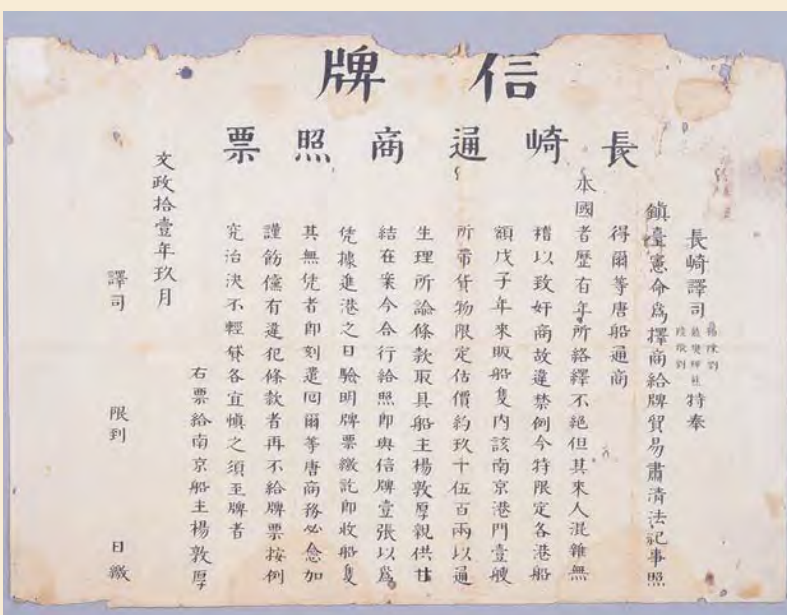 信牌
長崎通商照票
長崎譯司 特奉
鎮臺憲命爲擇商給牌貿易肅清法紀事照
得爾等唐船通商
本國者歷有年所絡繹不絶但其來人混雜無
稽以致奸商故違禁例今特限定各港船
額戊子年來販船隻内該南京港門壹艘
所帶貨物限定估價約玖千伍百兩以通
生理所論條款取具船主楊敦厚親供甘
結在案今合行給照即與信牌壹張以爲
凭據進港之日驗明牌票繳訖即收船隻
其無凭者即刻遣囘爾等唐商務必愈加
謹飭儻有違犯條款者再不給牌票按例
究治決不輕貸各宜愼之須至牌者
右票給南京船主楊敦厚
文政拾壹年玖月
譯司 限到 日繳